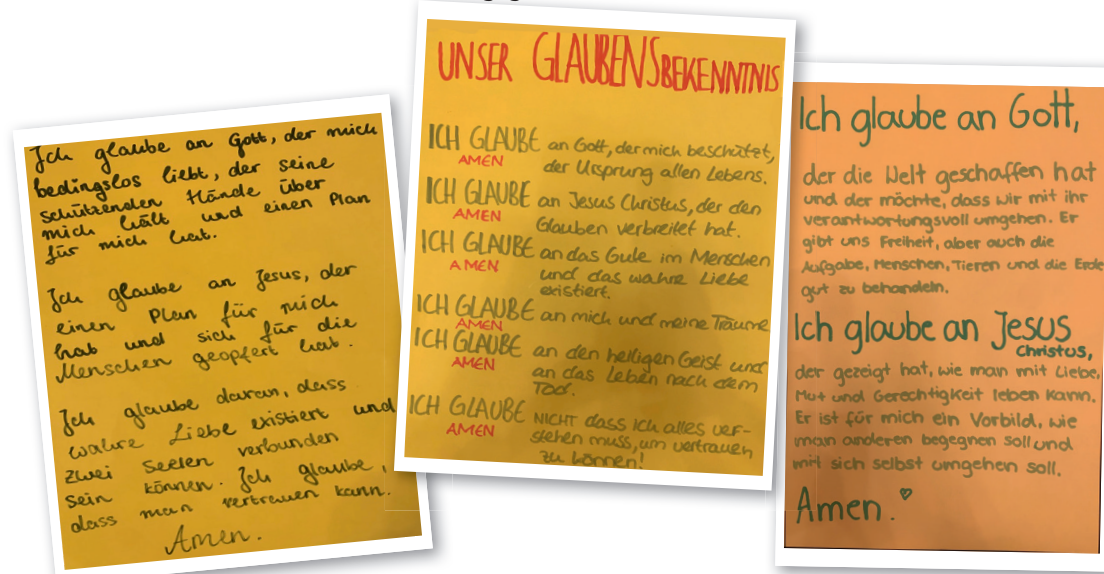 Ich glaube an Gott, der mich
bedingslos liebt, der seine
schützenden Hände über
mich hält und einen Plan
für mich hat.
Ich glaube an Jesus, der
einen Plan für mich
hat und sich für die
Menschen geopfert hat.
Ich glaube daran, dass
wahre Liebe existiert und
zwei Seelen verbunden
sein können. Ich glaube,
dass man vertrauen kann.
Amen.
UNSER GLAUBENSBEKENNTNIS
ICH GLAUBE an Gott, der mich beschützt,
AMEN der Ursprung allen Lebens.
ICH GLAUBE an Jesus Christus, der den
AMEN Glauben verbreitet hat.
ICH GLAUBE an das Gute im Menschen
AMEN und das wahre Liebe
existiert.
ICH GLAUBE an mich und meine Träume
AMEN
ICH GLAUBE an den heiligen Geist und
AMEN an das Leben nach dem
Tod.
ICH GLAUBE NICHT dass ich alles ver-
AMEN stehen muss, um vertrauen
zu können!
Ich glaube an Gott,
der die Welt geschaffen hat
und der möchte, dass wir mit ihr
verantwortungsvoll umgehen. Er
gibt uns Freiheit, aber auch die
Aufgabe, Menschen, Tieren und die Erde
gut zu behandeln.
Ich glaube an Jesus
Christus,
der gezeigt hat, wie man mit Liebe,
Mut und Gerechtigkeit leben kann.
Er ist für mich ein Vorbild, wie
man anderen begegnen soll und
mit sich selbst umgehen soll.
Amen.